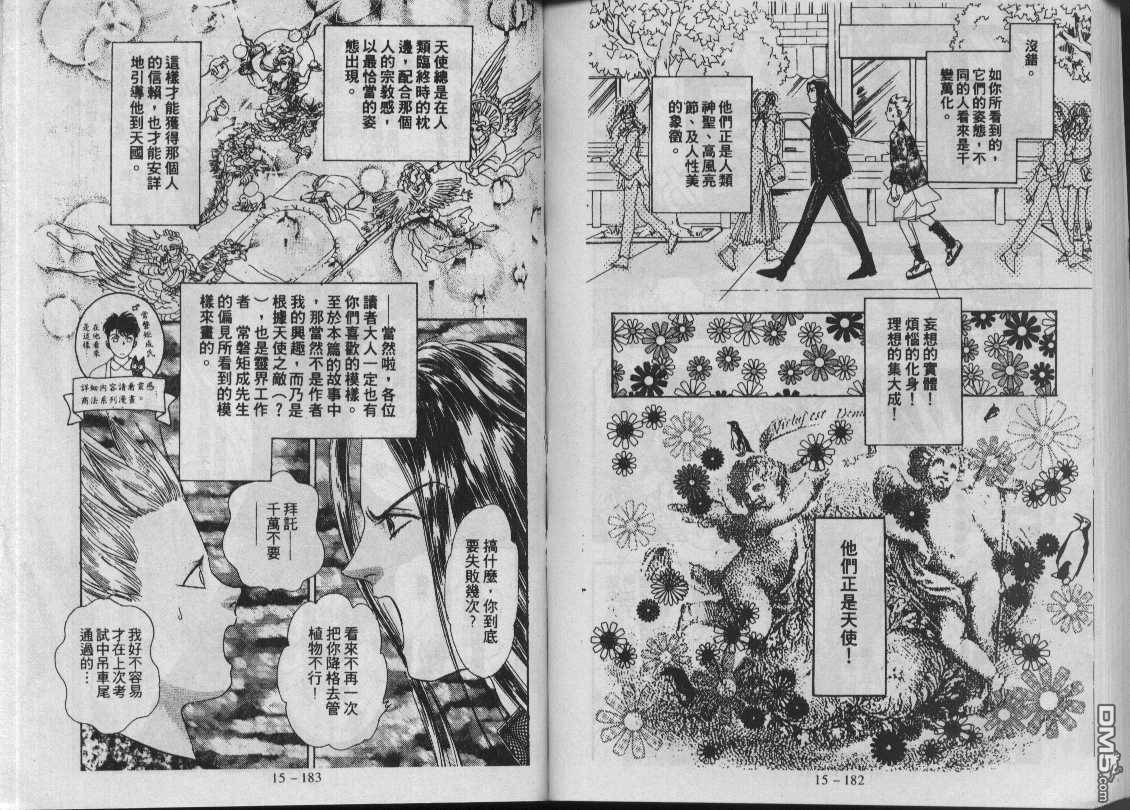 沒錯。
如你所看到的，
它們的姿態，不
同的人看來是千
變萬化。
他們正是人類
神聖、高風亮
節、及人性美
的象徵。
妄想的實體！
煩惱的化身！
理想的集大成！
他們正是天使！
15－182
天使總是在人
類臨終時的枕
邊，配合那個
人的宗教感，
以最恰當的姿
態出現。
這樣才能獲得那個人
的信賴，也才能安詳
地引導他到天國。
——當然啦，各位
讀者大人一定也有
你們喜歡的模樣。
至於本篇的故事中
，那當然不是作者
我的興趣，而乃是
根據天使之敵（？
），也是靈界工作
者　常磐矩成先生
的偏見所看到的模
樣來畫的。
常磐矩成氏
在他看來
是這樣
詳細內容請看靈感
商法系列漫畫。
搞什麼，你到底
要失敗幾次？
拜託——
千萬不要
——
看來不再一次
把你降格去管
植物不行！
我好不容易
才在上次考
試中吊車尾
通過的…
15－183
DM5.com